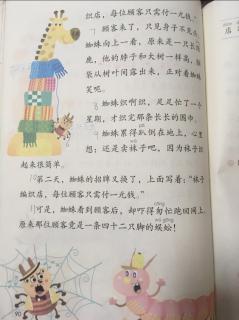 织店，每位顾客只需付一元钱。”
7 顾客来了，只见身子不见
蜘蛛向上一看，原来是一只长
鹿，他的脖子和大树一样高，脑
袋从树叶间露出来，正对着蜘蛛
笑呢。
8 蜘蛛织啊织，足足忙了一个
星期，才织完那条长长的围巾。
pā
9 蜘蛛累得趴倒在地上，心里
想：还是卖袜子吧，因为袜子织
起来很简单。
10 第二天，蜘蛛的招牌又换了，上面写着：“袜子
编织店，每位顾客只需付一元钱。”
11 可是，蜘蛛看到顾客后，却吓得匆忙跑回网上。
wú gōng
原来那位顾客竟是一条四十二只脚的蜈蚣！
90
店